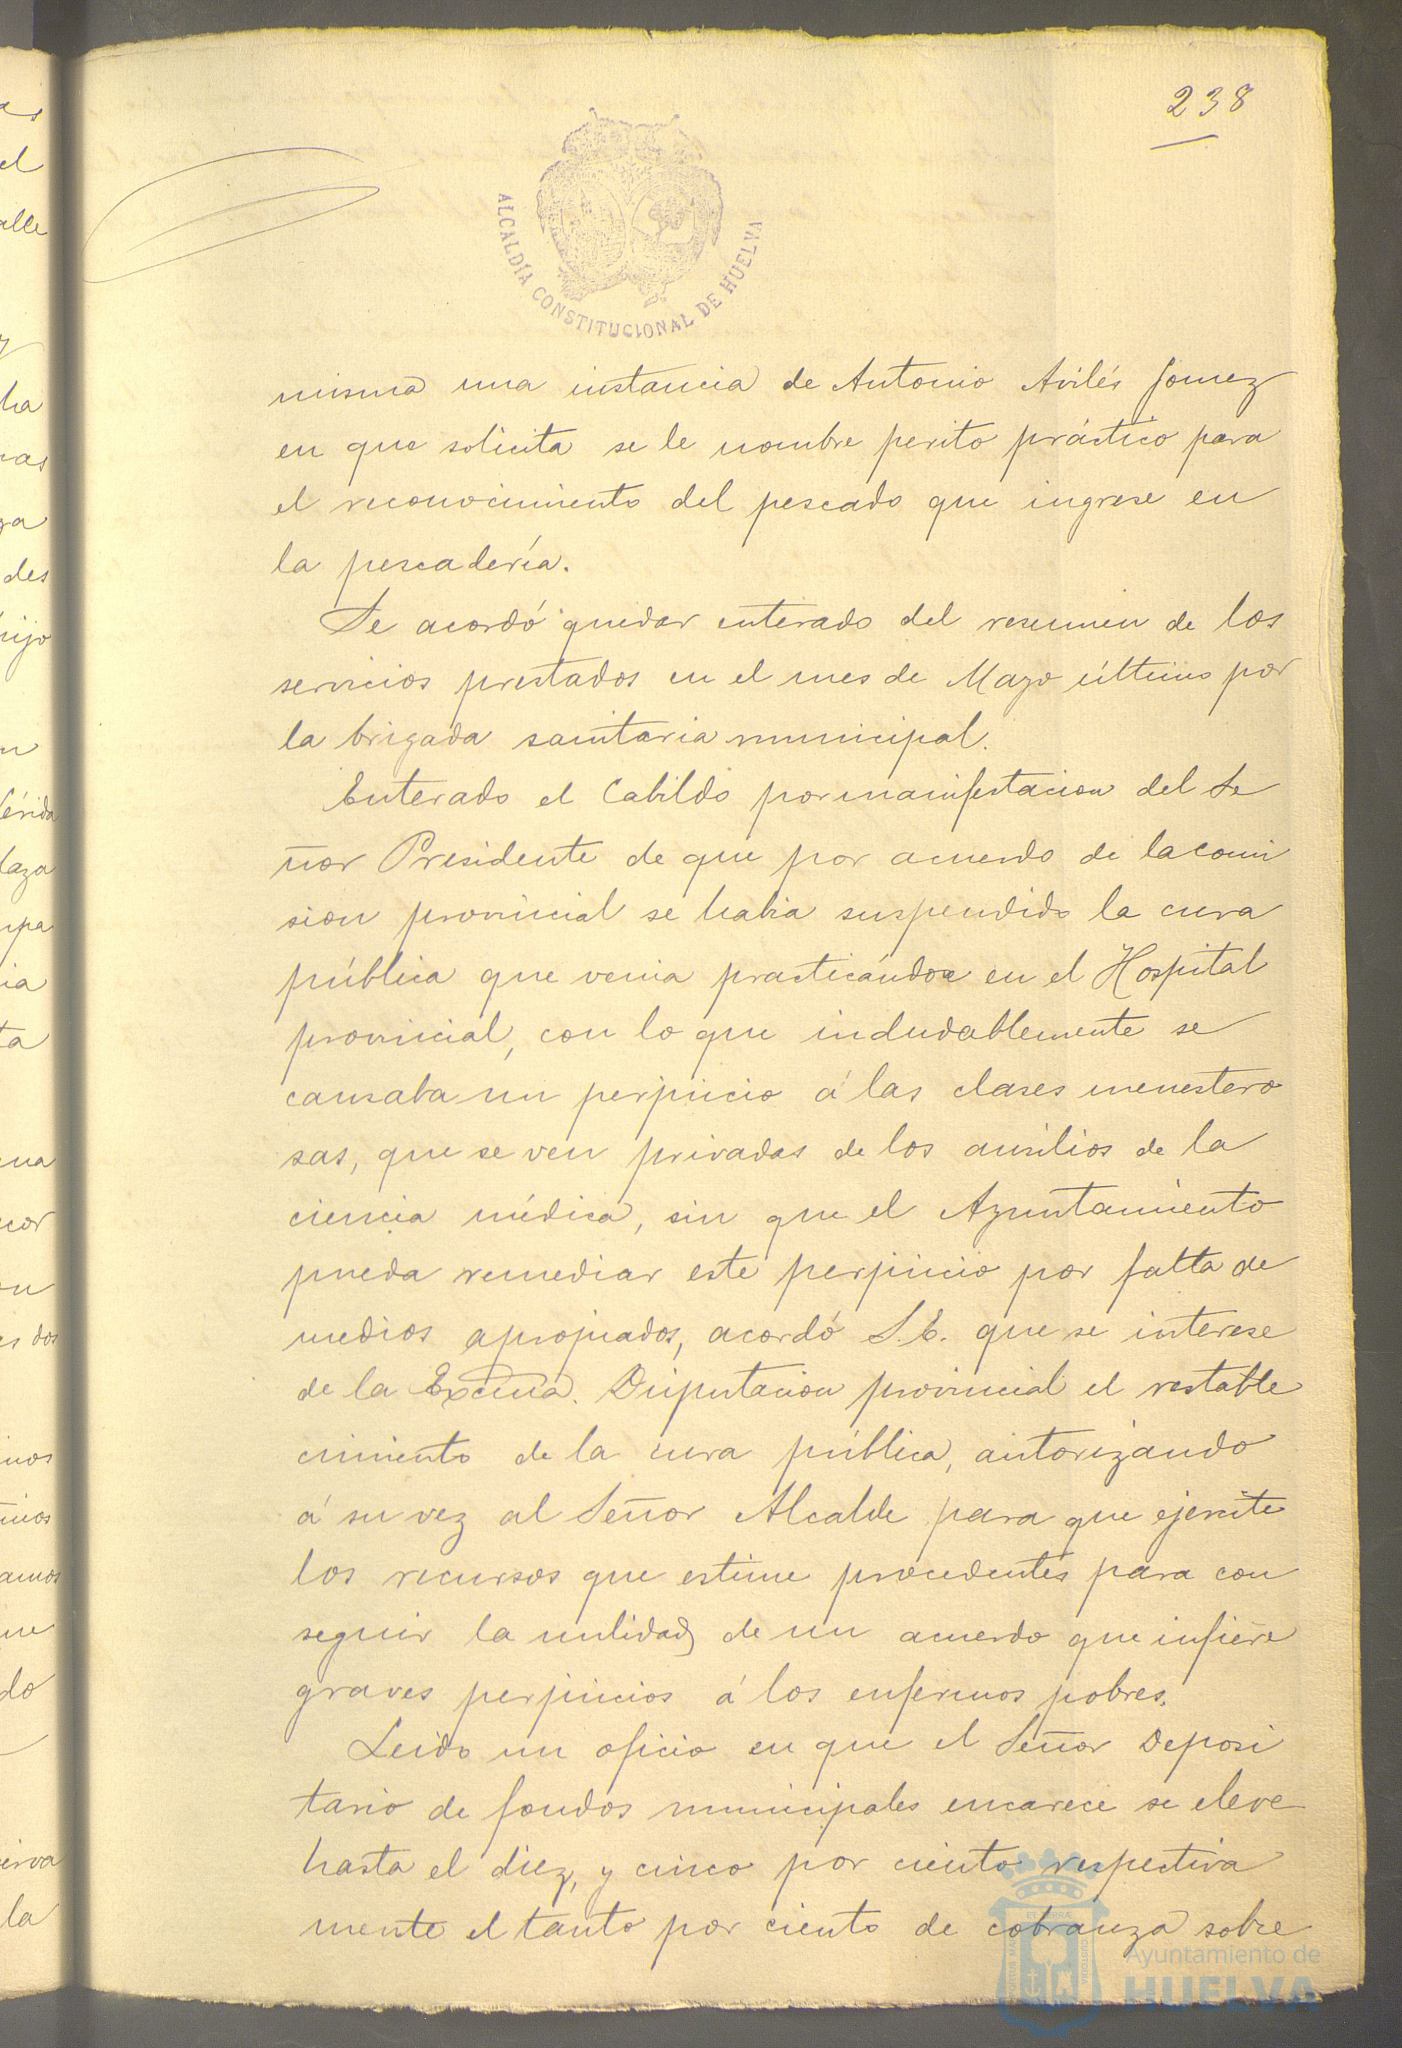 238
ALCALDÍA CONSTITUCIONAL DE HUELVA
misma una instancia de Antonio Avilés Gomez
en que solicita se le nombre perito práctico para
el reconocimiento del pescado que ingrese en
la pescadería.
Se acordó quedar enterado del resumen de los
servicios prestados en el mes de Mayo último por
la brigada sanitaria municipal.
Enterado el Cabildo por manifestacion del Se
ñor Presidente de que por acuerdo de la comi
sion provincial se habia suspendido la cura
pública que venia practicándose en el Hospital
provincial, con lo que indudablemente se
causaba un perjuicio á las clases menestero
sas, que se ven privadas de los ausilios de la
ciencia médica, sin que el Ayuntamiento
pueda remediar este perjuicio por falta de
medios apropiados, acordó S.E. que se interese
de la Excma. Diputacion provincial el restable
cimiento de la cura pública, autorizando
á su vez al Señor Alcalde para que ejercite
los recursos que estime procedentes para con
seguir la nulidad de un acuerdo que infiere
graves perjuicios á los enfermos pobres.
Leido un oficio en que el Señor Deposi
tario de fondos municipales encarece se eleve
hasta el diez, y cinco por ciento respectiva
mente el tanto por ciento de cobranza sobre
Ayuntamiento de
HUELVA